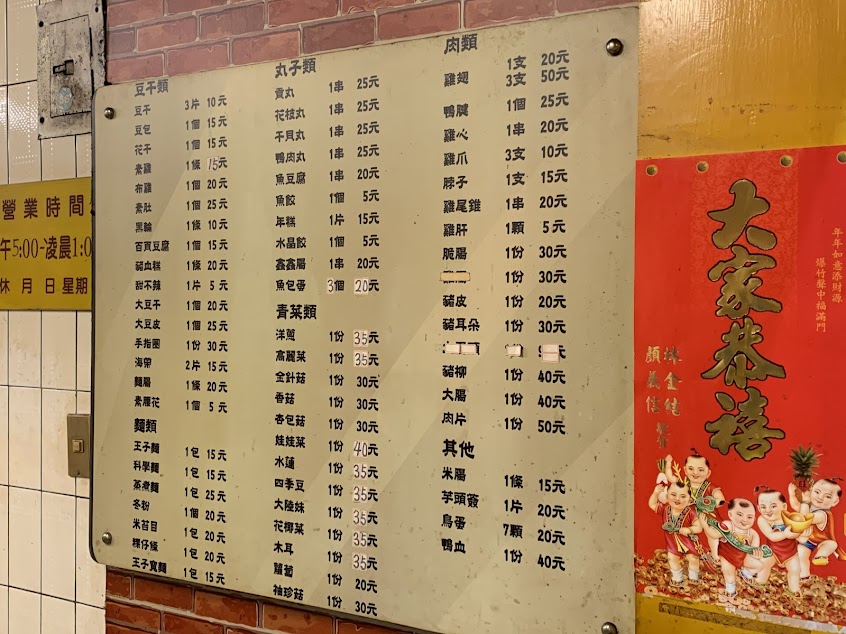 營業時間
午5:00-凌晨1:0
休 月 日星期
豆干類
豆干 3片 10元
豆包 1個 15元
花干 1個 15元
素雞 1條 15元
布雞 1個 20元
素肚 1個 25元
黑輪 1條 10元
百頁豆腐 1個 15元
豬血糕 1條 20元
甜不辣 1片 5元
大豆干 1個 20元
大豆皮 1個 25元
手指圈 1份 30元
海帶 2片 15元
麵腸 1條 20元
素腰花 1個 5元
麵類
王子麵 1包 15元
科學麵 1包 15元
蒸煮麵 1包 25元
冬粉 1個 20元
米苔目 1包 20元
粿仔條 1包 20元
王子寬麵 1包 15元
丸子類
貢丸 1串 25元
花枝丸 1串 25元
干貝丸 1串 25元
鴨肉丸 1串 25元
魚豆腐 1串 20元
魚餃 1個 5元
年糕 1片 15元
水晶餃 1個 5元
鑫鑫腸 1串 20元
魚包蛋 3個 20元
青菜類
洋蔥 1份 35元
高麗菜 1份 35元
金針菇 1份 30元
香菇 1份 30元
杏包菇 1份 30元
娃娃菜 1份 40元
水蓮 1份 35元
四季豆 1份 35元
大陸妹 1份 35元
花椰菜 1份 35元
木耳 1份 35元
蘿蔔 1份 20元
袖珍菇 1份 30元
肉類
雞翅 1支 20元
3支 50元
鴨腱 1個 25元
雞心 1串 20元
雞爪 3支 10元
脖子 1支 15元
雞尾錐 1串 20元
雞肝 1顆 5元
脆腸 1份 30元
1份 30元
豬皮 1份 20元
豬耳朵 1份 30元
豬柳 1份 40元
大腸 1份 40元
肉片 1份 50元
其他
米腸 1條 15元
芋頭簽 1片 20元
鳥蛋 7顆 20元
鴨血 1份 40元
大家恭禧
年年如意添財源
爆竹聲中福滿門
顏義信